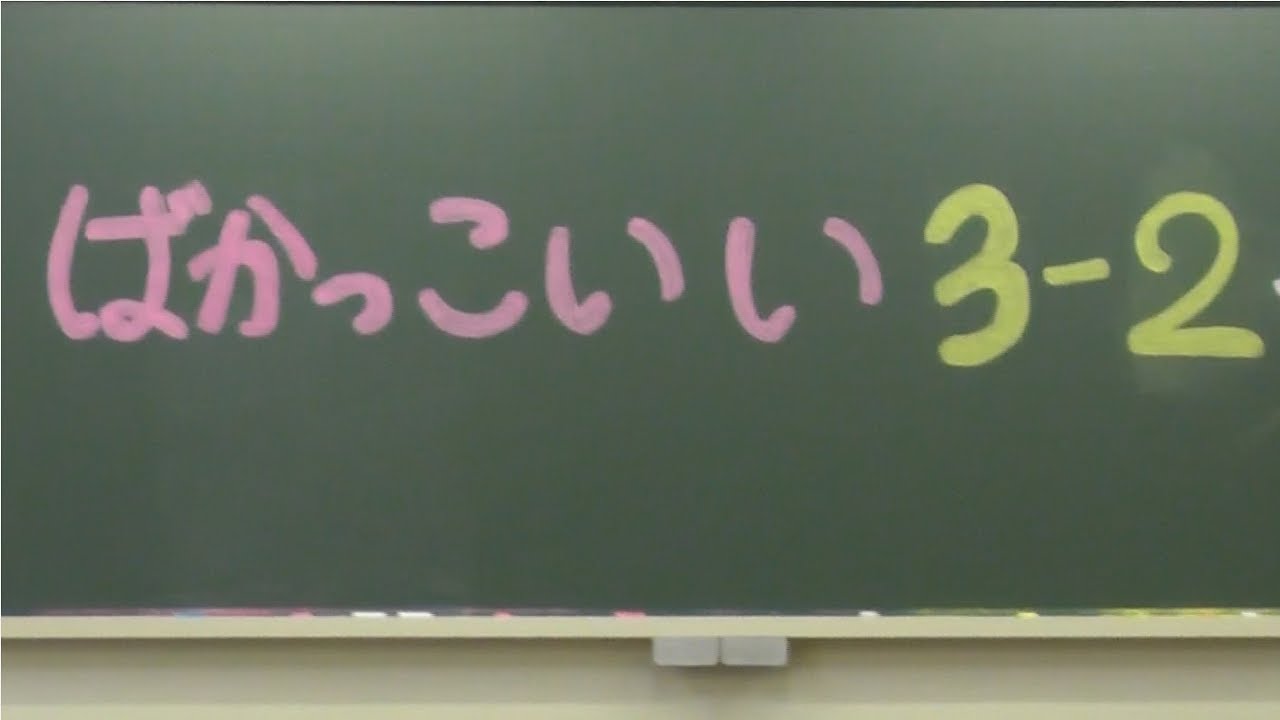 ばかっこいい3-2